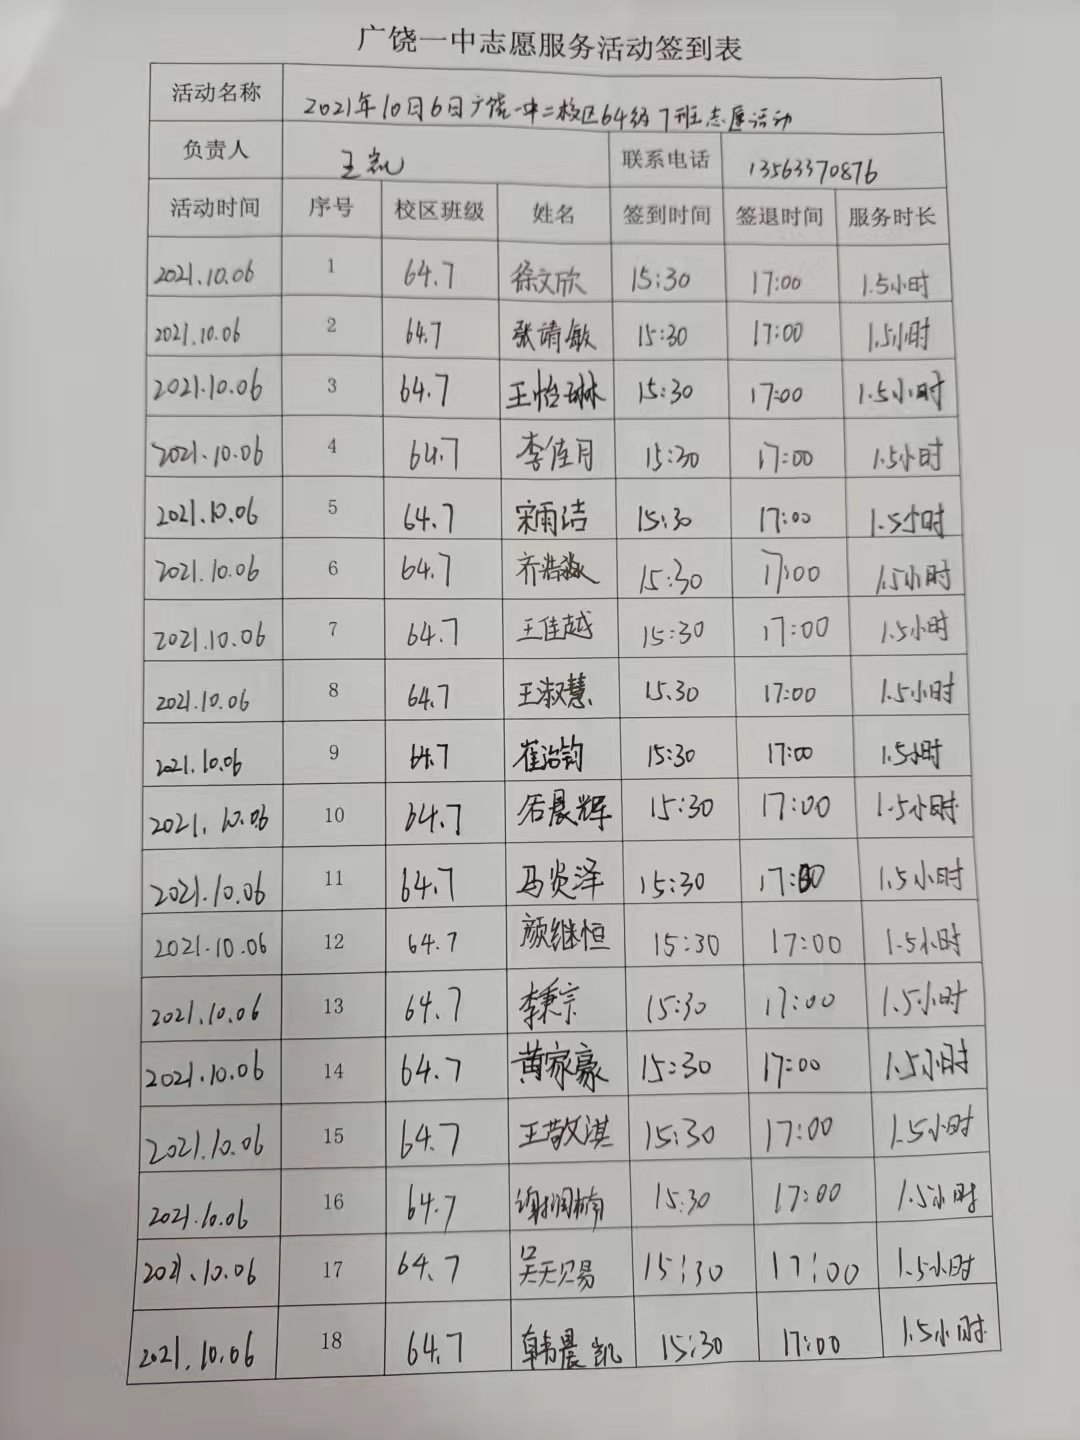 广饶一中志愿服务活动签到表
活动名称 2021年10月6日广饶一中二校区64级7班志愿活动
负责人 王凯 联系电话 13563370876
活动时间 序号 校区班级 姓名 签到时间 签退时间 服务时长
2021.10.06 1 64.7 徐文欣 15:30 17:00 1.5小时
2021.10.06 2 64.7 张靖敏 15:30 17:00 1.5小时
2021.10.06 3 64.7 王怡琳 15:30 17:00 1.5小时
2021.10.06 4 64.7 李佳月 15:30 17:00 1.5小时
2021.10.06 5 64.7 宋雨洁 15:30 17:00 1.5小时
2021.10.06 6 64.7 齐浩淼 15:30 17:00 1.5小时
2021.10.06 7 64.7 王佳越 15:30 17:00 1.5小时
2021.10.06 8 64.7 王淑慧 15.30 17:00 1.5小时
2021.10.06 9 64.7 崔治钧 15:30 17:00 1.5小时
2021.10.06 10 64.7 后晨辉 15:30 17:00 1.5小时
2021.10.06 11 64.7 马炎泽 15:30 17:00 1.5小时
2021.10.06 12 64.7 颜继恒 15:30 17:00 1.5小时
2021.10.06 13 64.7 李秉宗 15:30 17:00 1.5小时
2021.10.06 14 64.7 黄家豪 15:30 17:00 1.5小时
2021.10.06 15 64.7 王敬淇 15:30 17:00 1.5小时
2021.10.06 16 64.7 谢润楠 15:30 17:00 1.5小时
2021.10.06 17 64.7 吴天赐 15:30 17:00 1.5小时
2021.10.06 18 64.7 韩晨凯 15:30 17:00 1.5小时